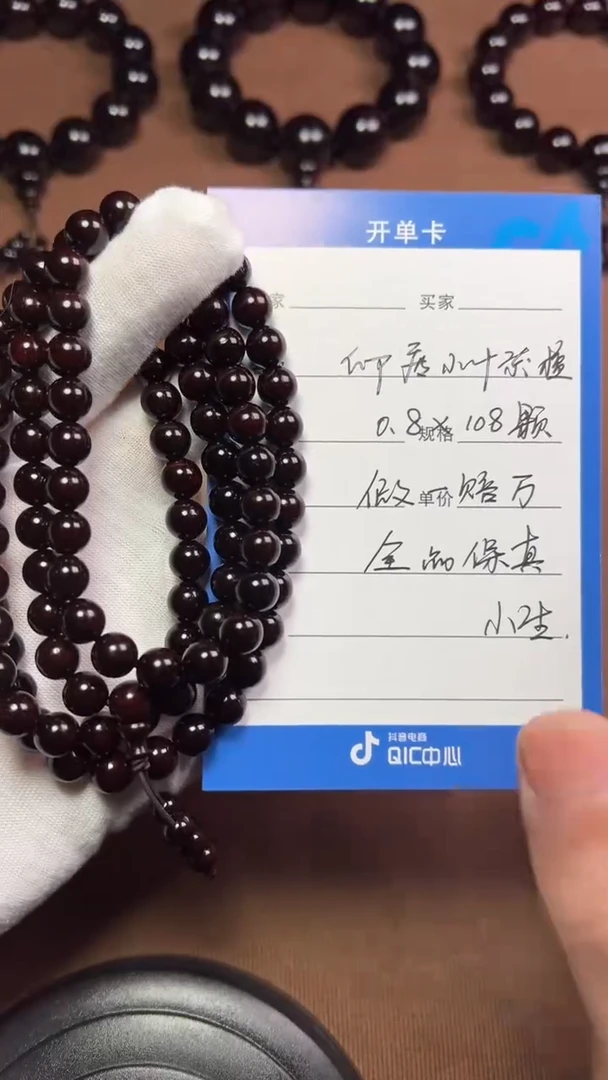 开单卡
家 买家
印度小叶紫檀
0.8规格×108颗
假单价赔万
全品保真
小生.
抖音电商
QIC中心